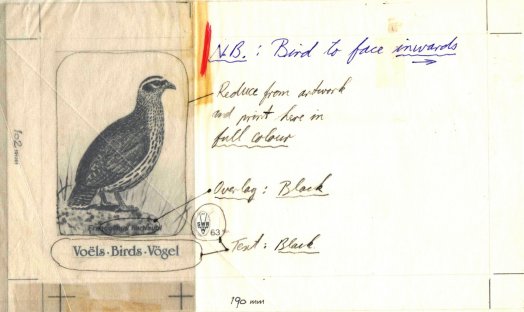 N.B. : Bird to face inwards
Reduce from artwork
and print here in
full colour
Overlay : Black
SWA
63
Text : Black
Voëls · Birds · Vögel
102 mm
190 mm